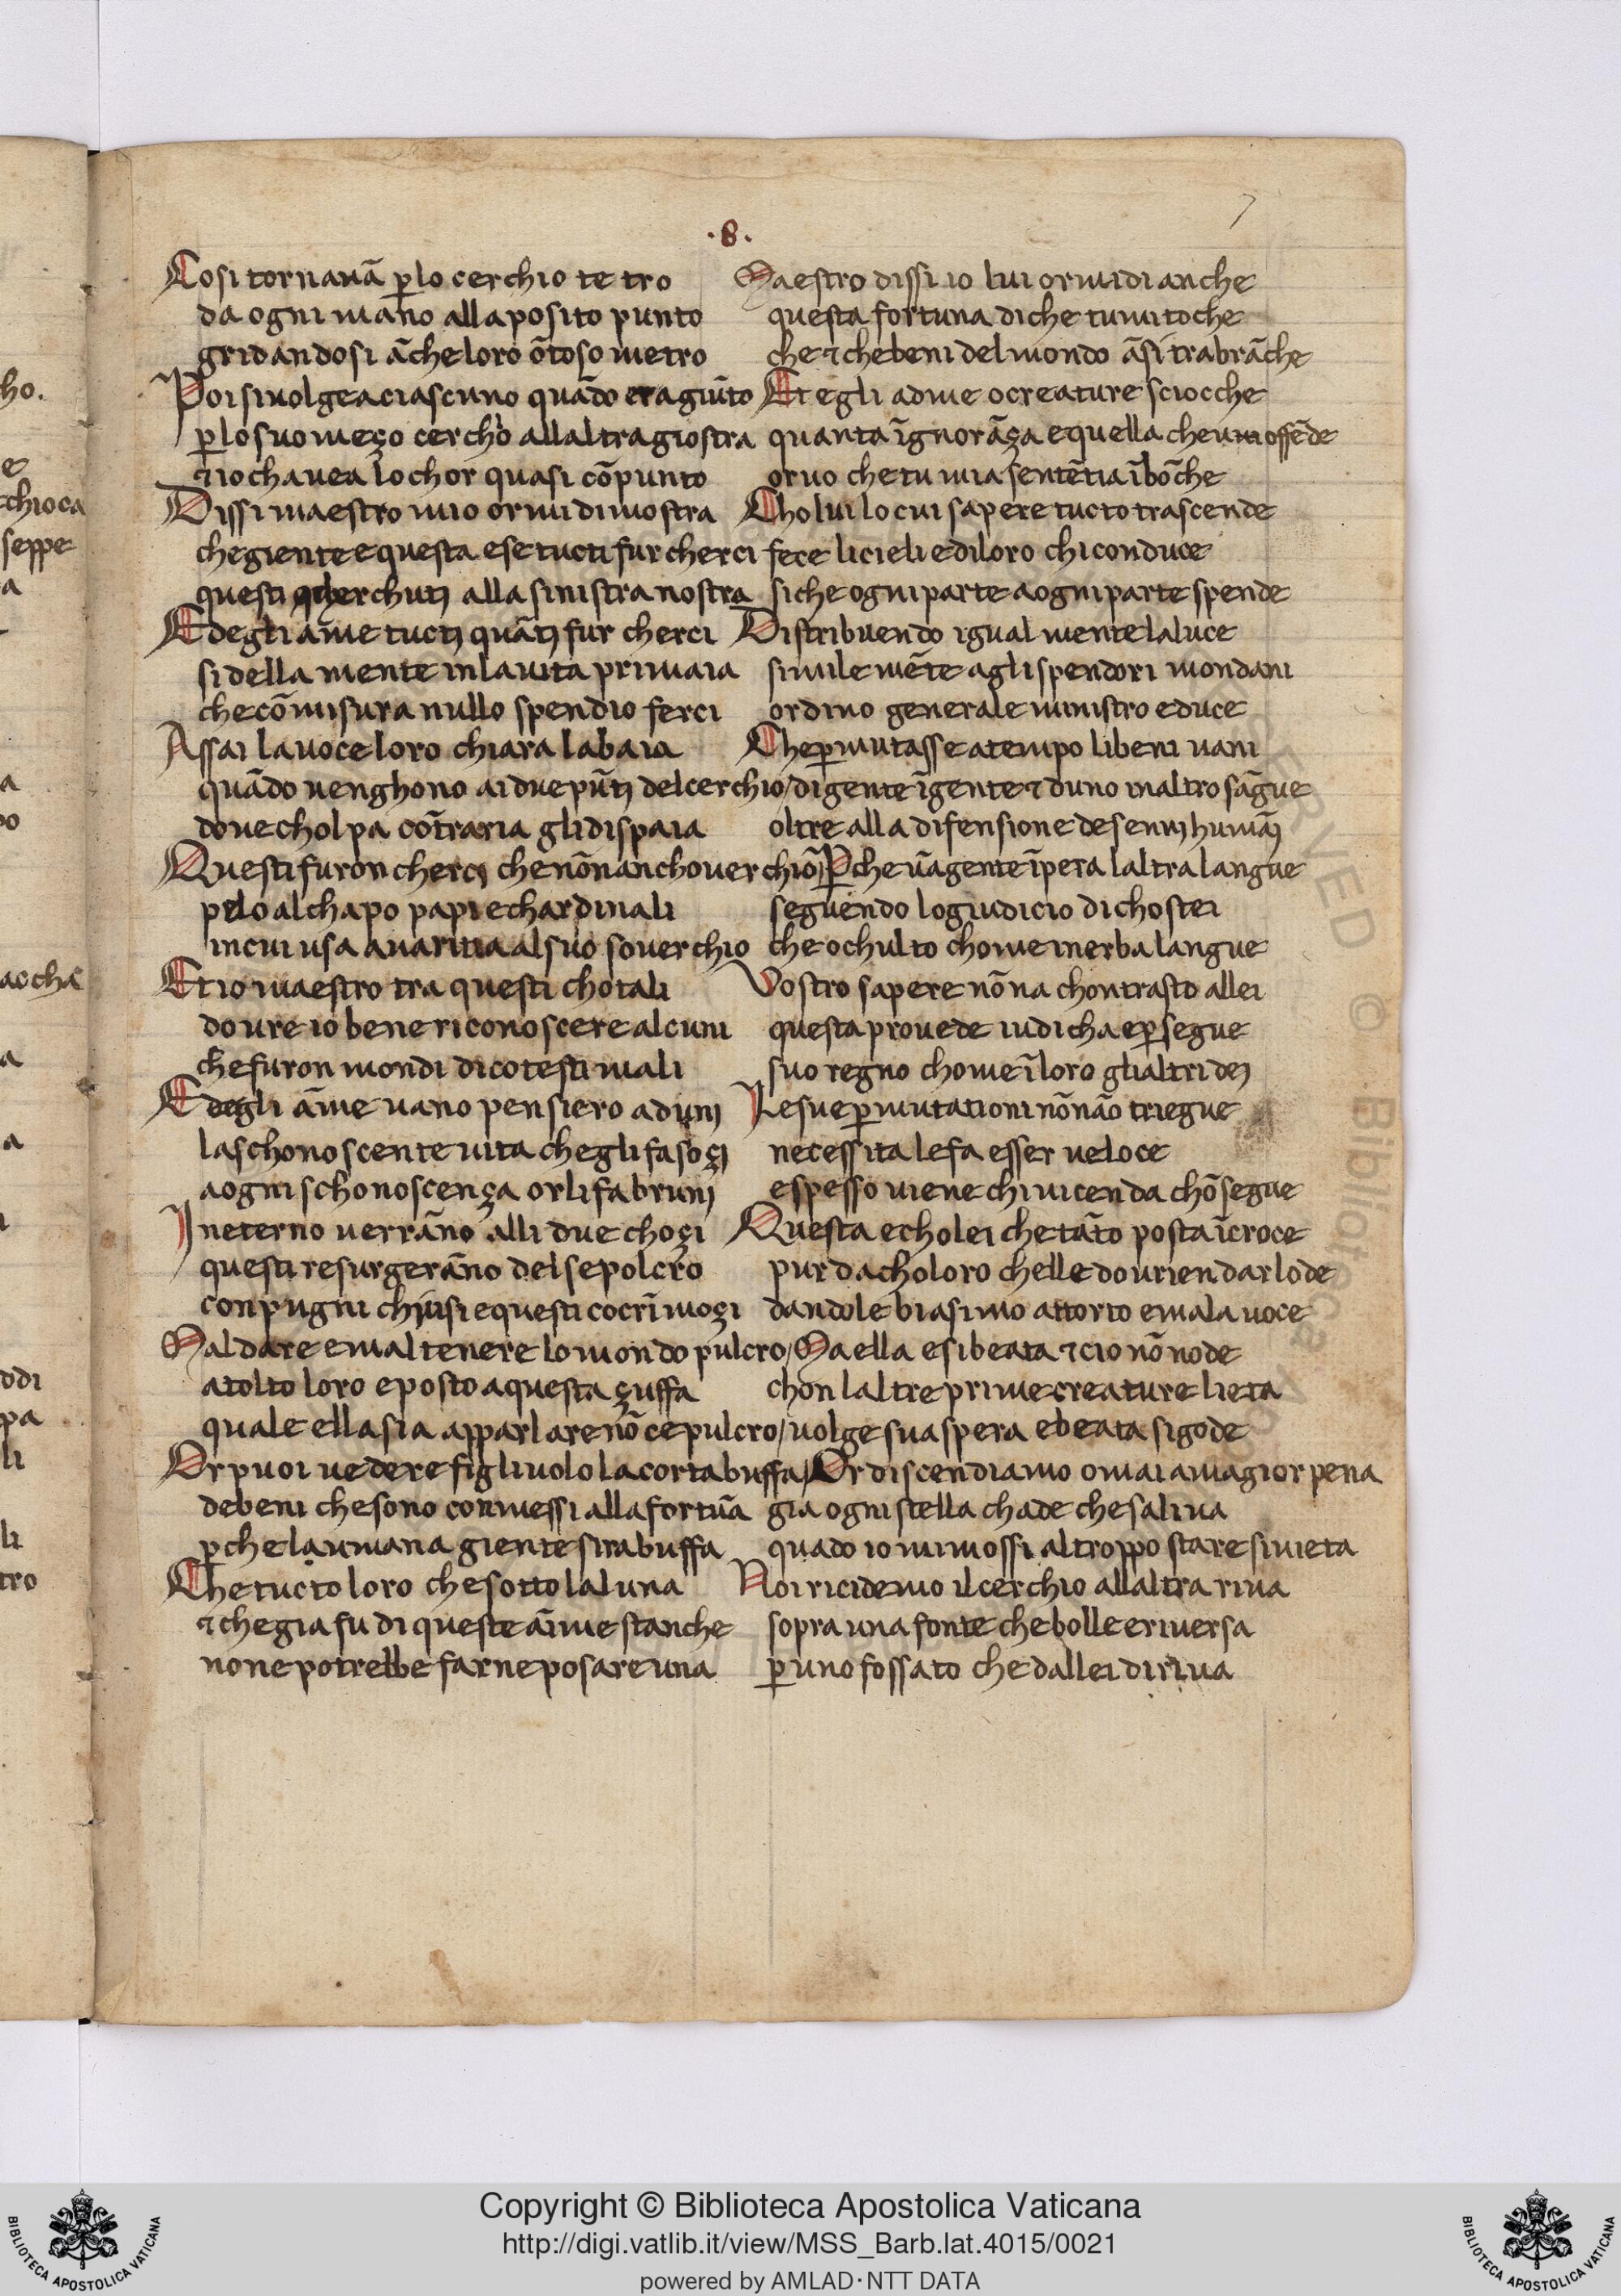 7
.8.
Cosi tornauā p̲lo cerchio te tro
da ogni mano allaposito punto
gridandosi āche loro ōtoso metro
Poi siuolgea ciascuno quādo era giūto
p̲lo suo meço cerchio allaltra giostra
⁊ io chauea lo chor quasi cōpunto
Dissi maestro mio or mi dimostra
che giente e questa e se tucti fur cherci
questi cherchuti alla sinistra nostra
Ed egli āme tucti quāti fur cherci
si della mente in la uita primaia
che cō misura nullo spendio ferci
Assai la uoce loro chiara labaia
quādo uenghono ai due pūti del cerchio
doue cholpa cōtraria gli dispaia
Questi furon cherci che nōn an chouerchiō
pelo al chapo papi e chardinali
in cui usa auaritia al suo souerchio
Et io maestro tra questi chotali
doure io bene riconoscere alcuni
che furon mondi di cotesti mali
Ed egli āme uano pensiero aduni
la schonoscente uita che gli fa soçi
a ogni schonoscença or li fa bruni
In eterno uerrāno alli due choçi
questi resurgerāno del sepolcro
con pugni chiusi e questi co crī moçi
Mal dare e mal tenere lo mondo pulcro
a tolto loro e posto a questa çuffa
quale ella sia apparlare nō ce pulcro
Or puoi uedere figliuolo la corta buffa
de beni che sono conmessi alla fortūa
p̲che la umana giente si rabuffa
Che tucto loro che sotto la luna
⁊ che gia fu di queste āime stanche
none potrebbe farne posare una
Maestro dissi io lui or mi di anche
questa fortuna di che tu mi toche
che ⁊ che beni del mondo ā si tra brāche
Et egli ad me o creature sciocche
quanta īgnorāça e quella che ui offēde
or uo che tu mia sentētia ībōche
Cholui lo cui sapere tucto trascende
fece li cieli e di loro chi conduce
si che ogni parte a ogni parte spende
Distribuendo igualmente la luce
simile mēte agli spendori mondani
ordino generale ministro e duce
Che p̲mutasse a tempo li beni uani
di gente ī gente ⁊ duno in altro sāgue
oltre alla difensione de senni humāi
P̲che ūa gente īpera laltra langue
seguendo lo giudicio di chostei
che ochulto chome in erba langue
Vostro sapere nō na chontrasto allei
questa prouede iudicha e p̲segue
suo regno chome ī loro gli altri dei
Le sue p̲mutationi nō nāo triegue
necessita le fa esser ueloce
e spesso uiene chi uicenda chōsegue
Questa e cholei che tāto posta ī croce
pur da choloro chelle dourien dar lode
dandole biasimo attorto e mala uoce
Ma ella e si beata ⁊ cio nō node
chon laltre prime creature lieta
uolge sua spera e beata si gode
Or discendiamo omai a magior pena
gia ogni stella chade che saliua
quado io mi mossi al troppo stare si uieta
Noi ricidemo il cerchio allaltra riua
sopra una fonte che bolle e riuersa
p̲ uno fossato che dallei diriua
ho.
e
chioca
seppe
a
a
po
accha
a
a
odi
pa
li
li
tro
RESERVED © Biblioteca
BIBLIOTECA APOSTOLICA VATICANA
Copyright © Biblioteca Apostolica Vaticana
http://digi.vatlib.it/view/MSS_Barb.lat.4015/0021
powered by AMLAD·NTT DATA
BIBLIOTECA APOSTOLICA VATICANA